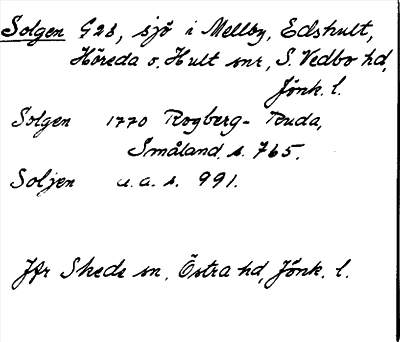 Solgen G28, sjö i Mellby, Edshult,
Höreda o. Hult snr, S. Vedbo hd,
Jönk. l.
Solgen 1770 Rogberg - Ruda,
Småland s. 765.
Soljen a.a. s. 991.
Jfr Skede sn, Östra hd, Jönk. l.